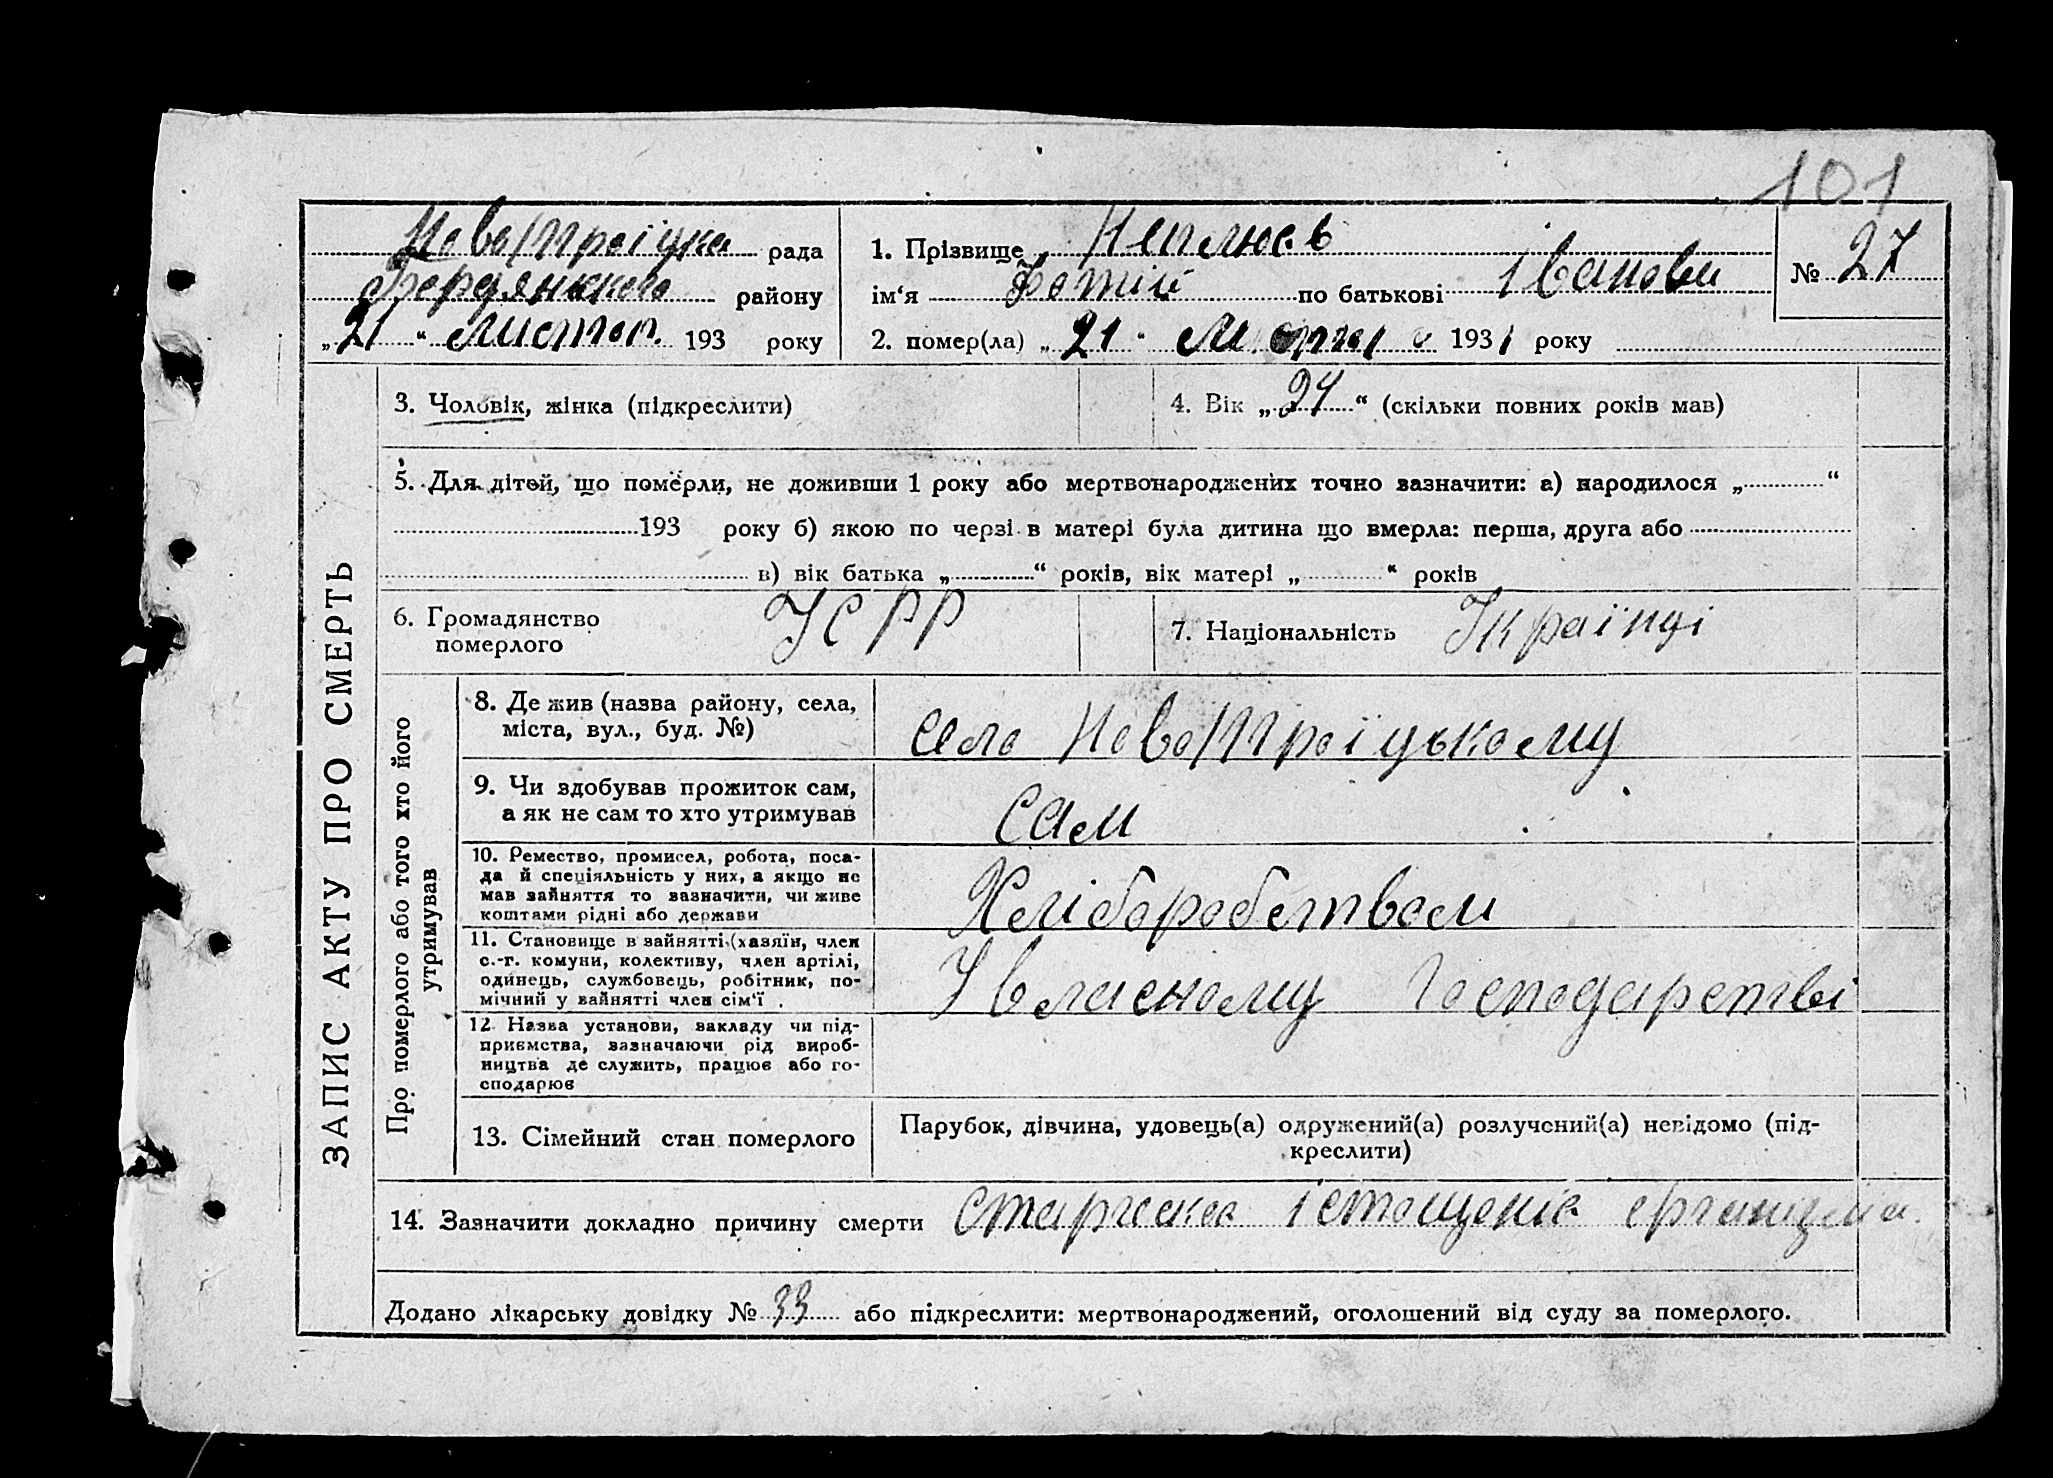 101
Новотроіцка рада
Бердянского району
„21“ листоп. 193 року
1. Прізвище Неплюєв
ім‘я Фотій по батькові Іванови
№ 27
2. помер(ла) „21“ 1931 року
ЗАПИС АКТУ ПРО СМЕРТЬ
3. Чоловік, жінка (підкреслити)
4. Вік „24“ (скільки повних років мав)
5. Для дітей, що померли, не доживши 1 року або мертвонароджених точно зазначити: а) народилося „ “
193 року б) якою по черзі в матері була дитина що вмерла: перша, друга або
в) вік батька „ “ років, вік матері „ “ років
6. Громадянство
померлого
УСРР
7. Національність Українці
Про померлого або того хто його
утримував
8. Де жив (назва району, села,
міста, вул., буд. №)
село Новотроіцькому
9. Чи здобував прожиток сам,
а як не сам то хто утримував
сам
10. Ремество, промисел, робота, поса-
да й спеціяльність у них, а якщо не
мав зайняття то зазначити, чи живе
коштами рідні або держави
Хліборобством
11. Становище в зайнятті (хазяїн, член
с.-г. комуни, колективу, член артілі,
одинець, службовець, робітник, по-
мічний у зайнятті член сім‘ї .
У власному господарстві
12. Назва установи, закладу чи під-
приємства, зазначаючи рід вироб-
ництва де служить, працює або го-
сподарює
13. Сімейний стан померлого
Парубок, дівчина, удовець(а) одружений(а) розлучений(а) невідомо (під-
креслити)
14. Зазначити докладно причину смерти старческое істощеніе организма
Додано лікарську довідку № 33 або підкреслити: мертвонароджений, оголошений від суду за померлого.